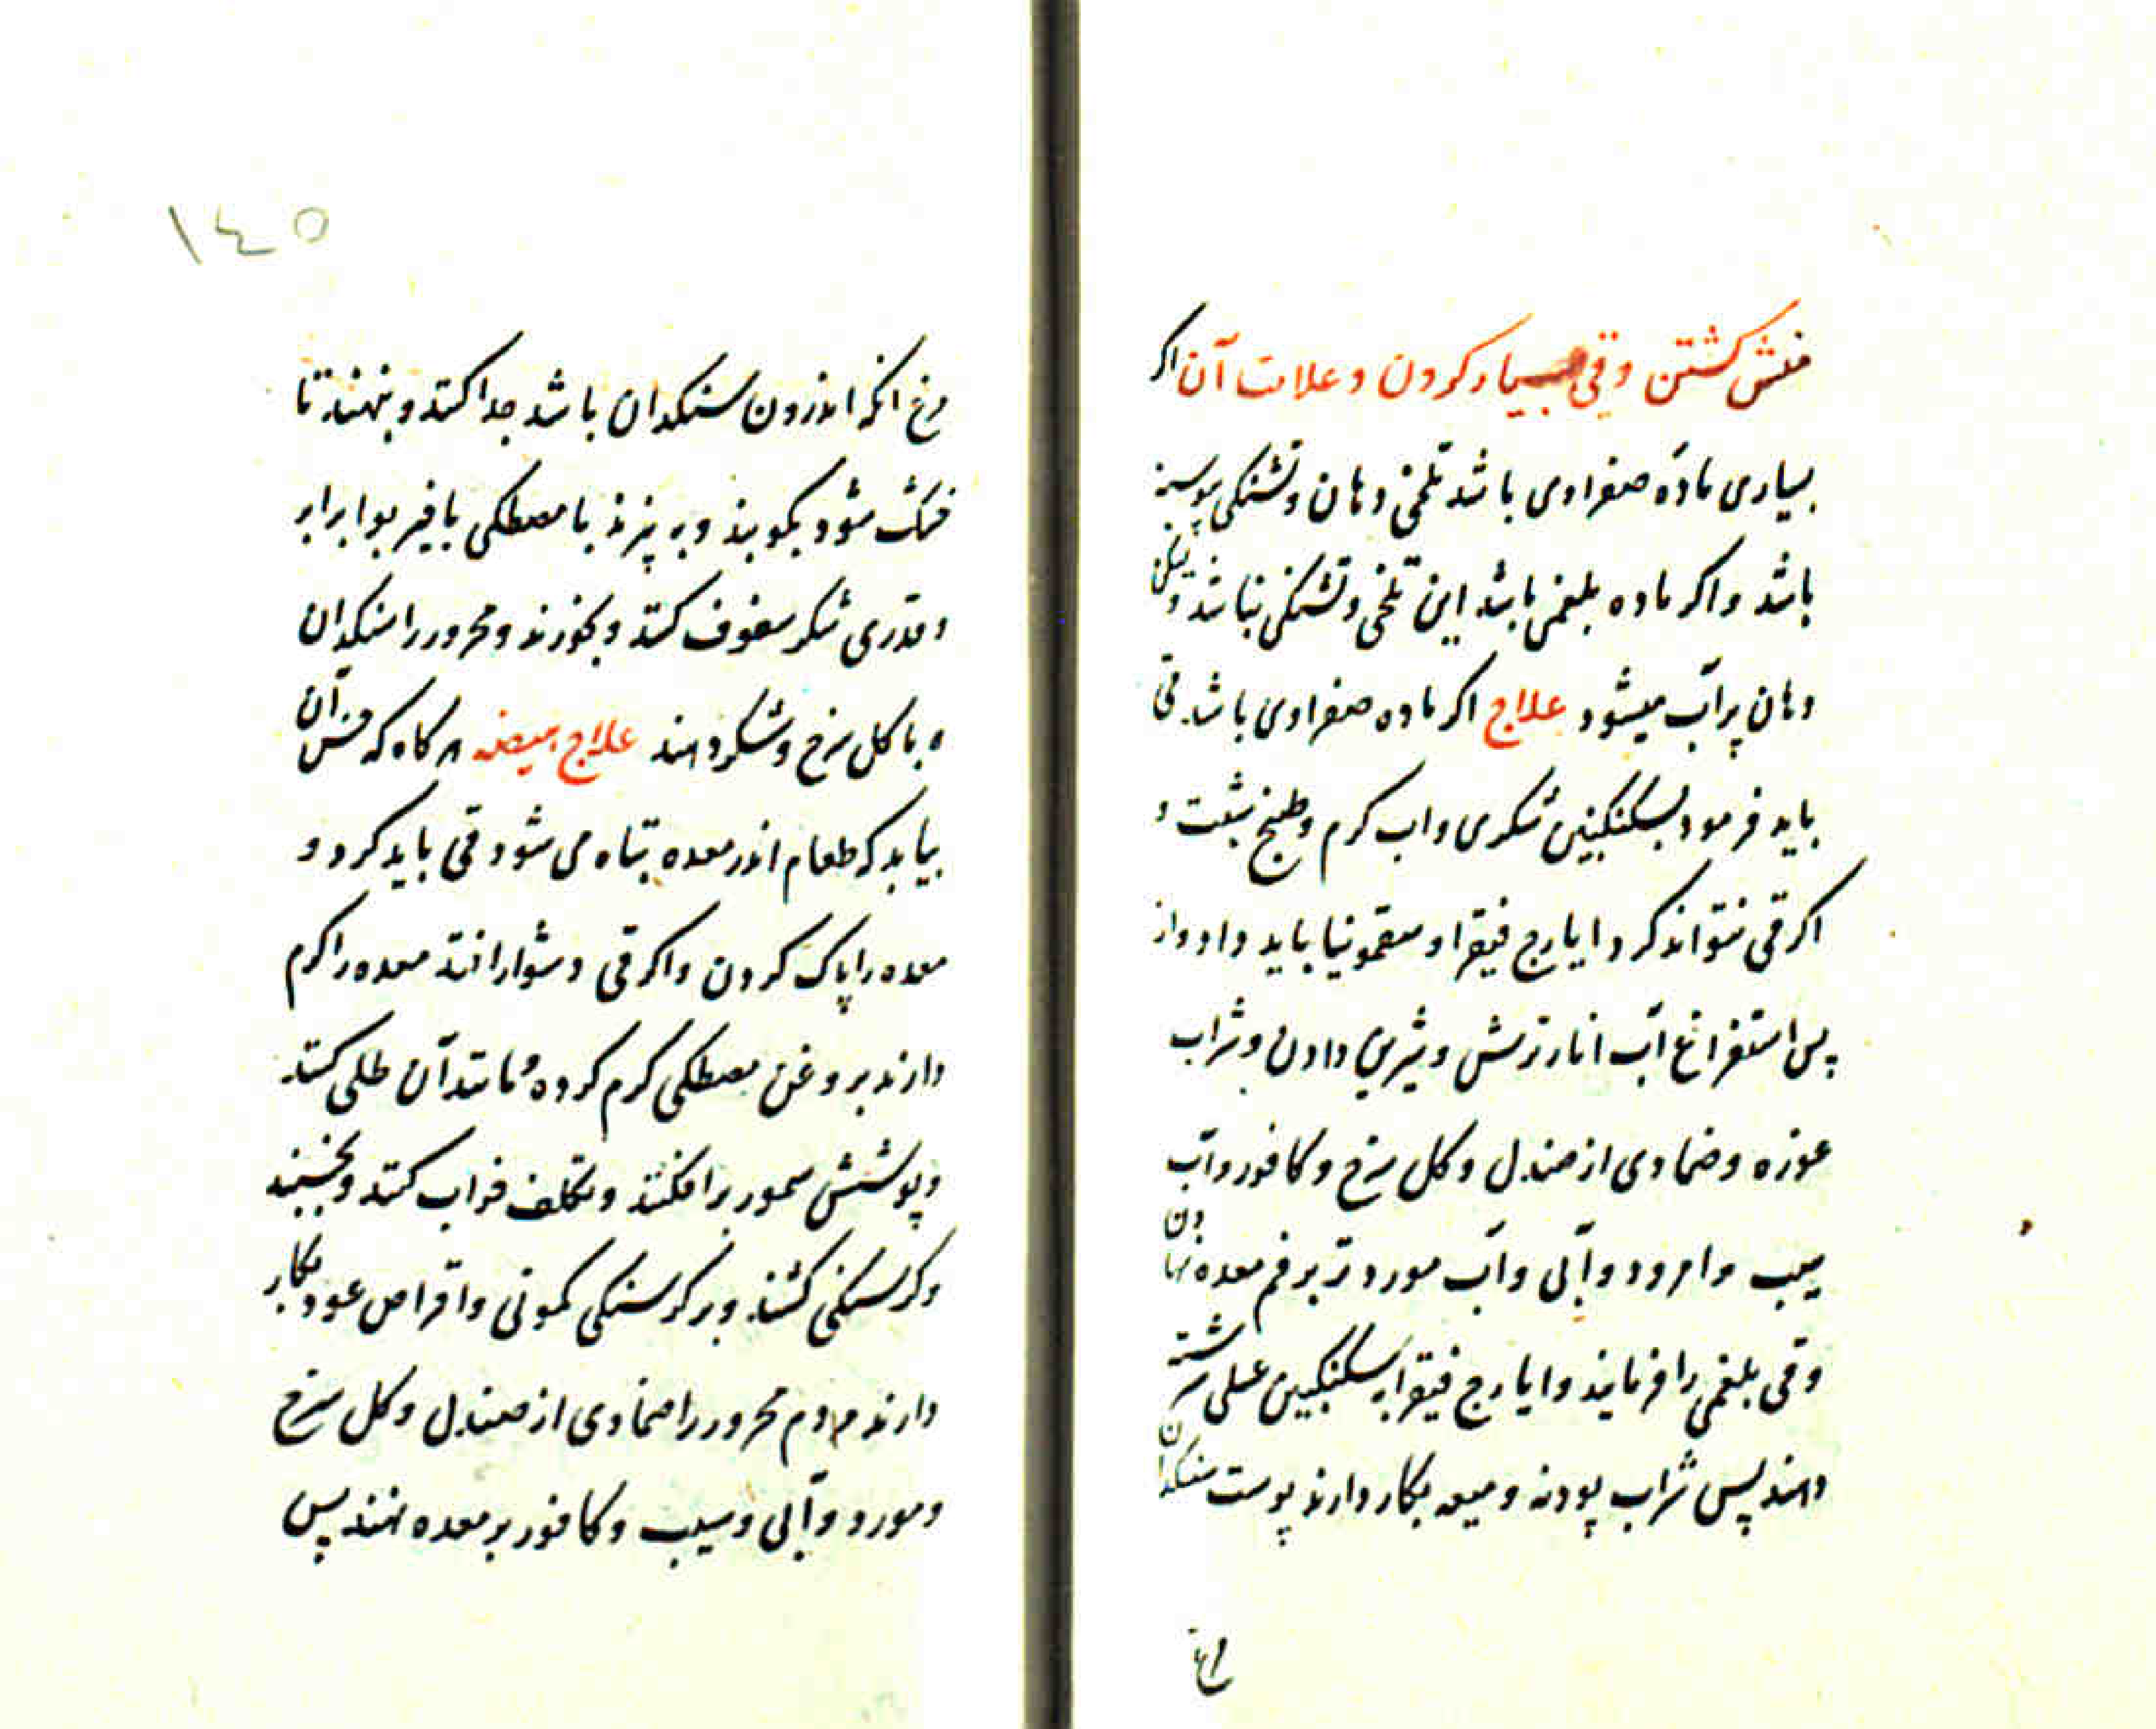 منش کشتن و قی بسیار کردن و علامت آن اکر
بسیاری مادّه صفراوی باشد تلخی دهان و تشنکی پیوسته
باشد و اکر ماده بلغمی باشد این تلخی و تشنکی نباشد و لیکن
دهان پرآب میشود علاج اکر ماده صفراوی باشد قی
باید فرمود بسکنکبین شکری و اب کرم و طبیخ شبت و
اکر قی نتواند کرد ایارج فیقرا و سقمونیا باید داد و از
پس استفراغ آب انار ترش و شیرین دادن و شراب
غوره و ضمادی از صندل و کل سرخ و کافور و آب
سیب و امرود و آبی و آب مورد تر بر فم معده نهادن
و قی بلغمی را فرمایند و ایارج فیقرا به سکنکبین عسلی سرشته
دهند پس شراب پودنه و میبه بکار دارند پوست سنکدان
مرغ
١٤٥
مرغ انکه اندرون سنکدان باشد جدا کنند و بنهند تا
خشک شود بکوبند و به پزند با مصطکی یا فیر بوا برابر
و قدری شکر سفوف کنند و بخورند و محرور را سنکدان
با کل سرخ و شکر دهند علاج هیضه هر کاه که منش آن
بیابد که طعام اندر معده تباه می شود قی باید کرد و
معده را پاک کردن و اکر قی دشوار افتد معده را کرم
دارند بروغن مصطکی کرم کرده و مانند آن طلی کنند
و پوشش سمور برافکنند و تکلف خواب کنند و بخسبند
و کرسنکی کشند و بر کرسنکی کمونی و اقراص عود بکار
دارند مردم محرور را ضمادی از صندل و کل سرخ
و مورد و آبی و سیب و کافور بر معده نهند پس